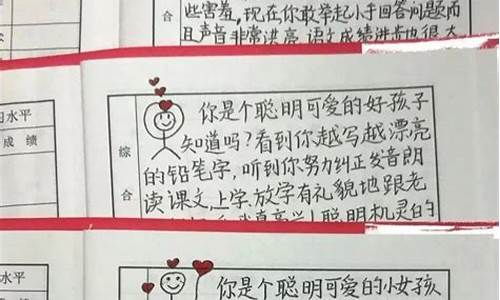 些害羞,现在你敢举起小手回答问题而
且声音非常洪亮,语文成绩进步也很大
合
水平
成 绩
综
合
你是个聪明可爱的好孩子
知道吗?看到你越写越漂亮
的铅笔字,听到你努力纠正发音朗
读课文,上学、放学有礼貌地跟老
我真高兴!聪明机灵的
水平
你是个聪明可爱的小女孩